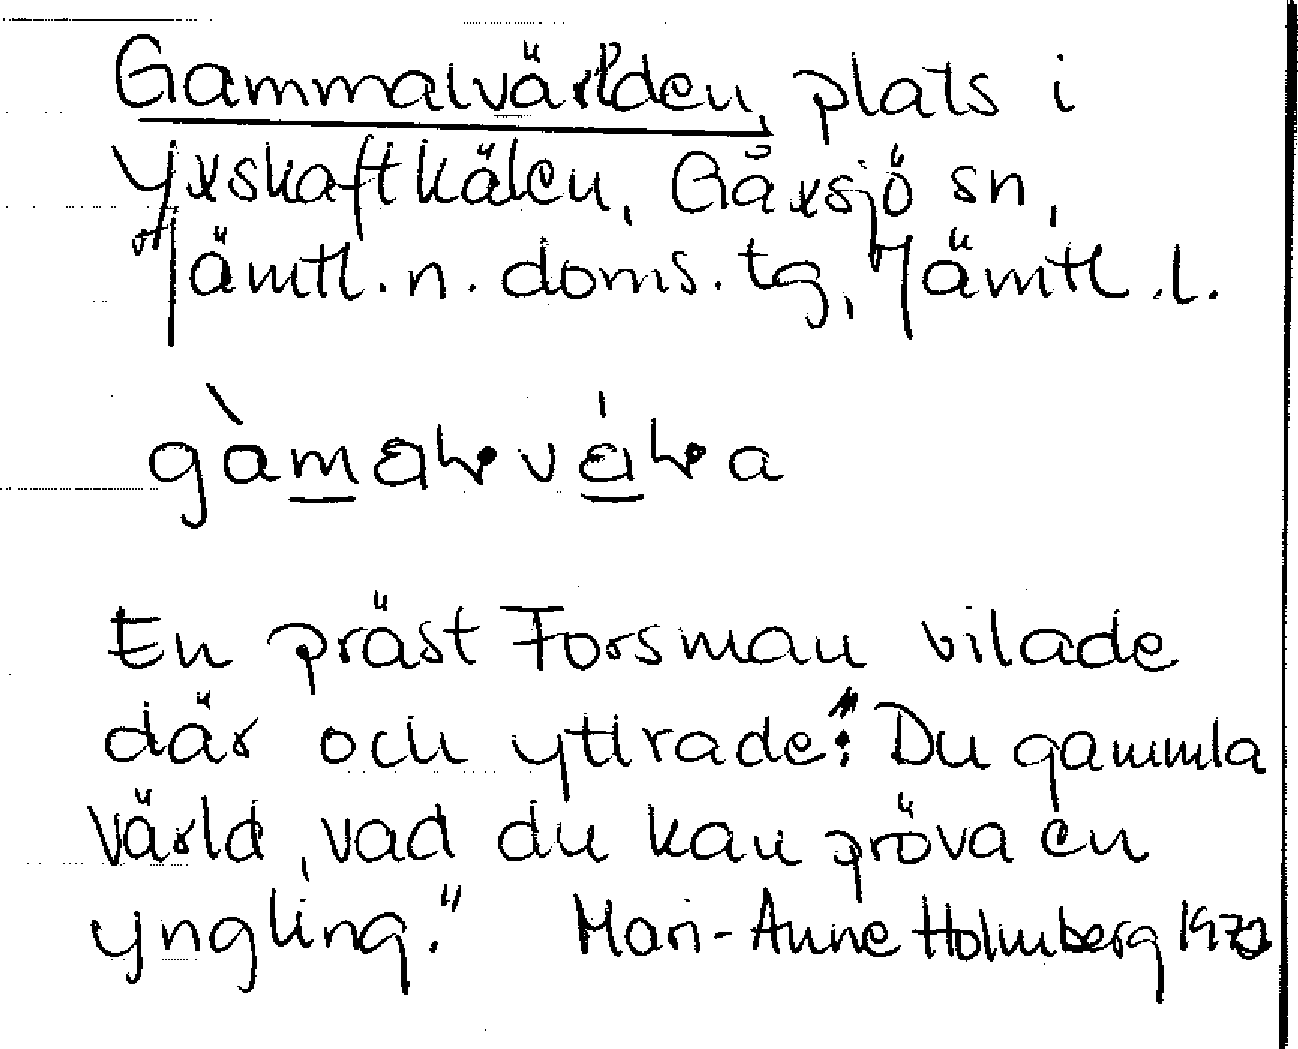 Gammalvärlden, plats i
Yxskaftkälen, Gåxsjö sn,
Jämtl. n. doms. tg, Jämtl. l.
En präst Forsman vilade
där och yttrade: "Du gammla
värld, vad du kan pröva en
yngling." Mari-Anne Holmberg